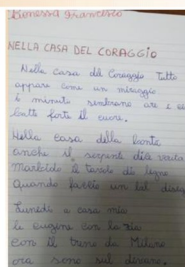 Francesco
NELLA CASA DEL CORAGGIO
Nella Casa del Coraggio tutto
appare come un miraggio
i minuti sembrano ore e
batte forte il cuore.
Nella Casa della
anche il serpente dice
le tavole di legno
Quando un bel
Lunedì a casa mia
le cugine con la zia
con il treno da Milano
ora sono sul divano.